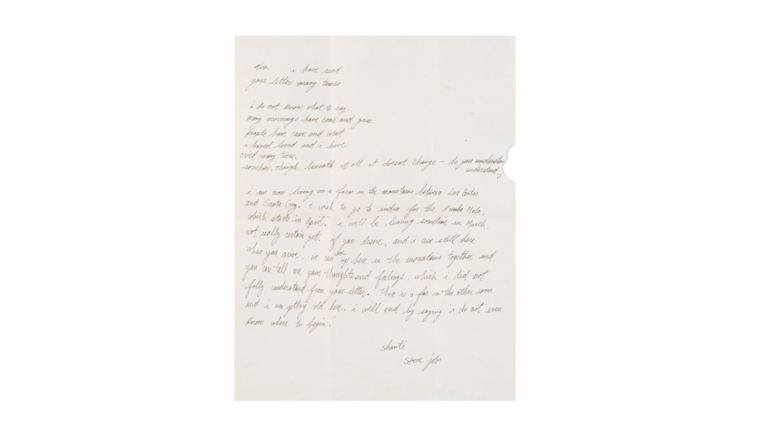 tim    i have read
your letter many times
i do not know what to say.
many mornings have come and gone
people have came and went
i have loved and i have
cried many times.
somehow, though, beneath it all it doesn't change - do you understand
understand?
i am now living on a farm in the mountains between Los Gatos
and Santa Cruz. i wish to go to india for the Kumba Mela,
which starts in april. i will be leaving sometime in March,
not really certain yet. if you desire, and i am still here
when you arrive, we can be here in the mountains together and
you can tell me your thoughts and feelings, which i did not
fully understand from your letter. There is a fire in the other room
and i am getting cold here. i will end by saying i do not even
know where to begin.
shanti
steve jobs